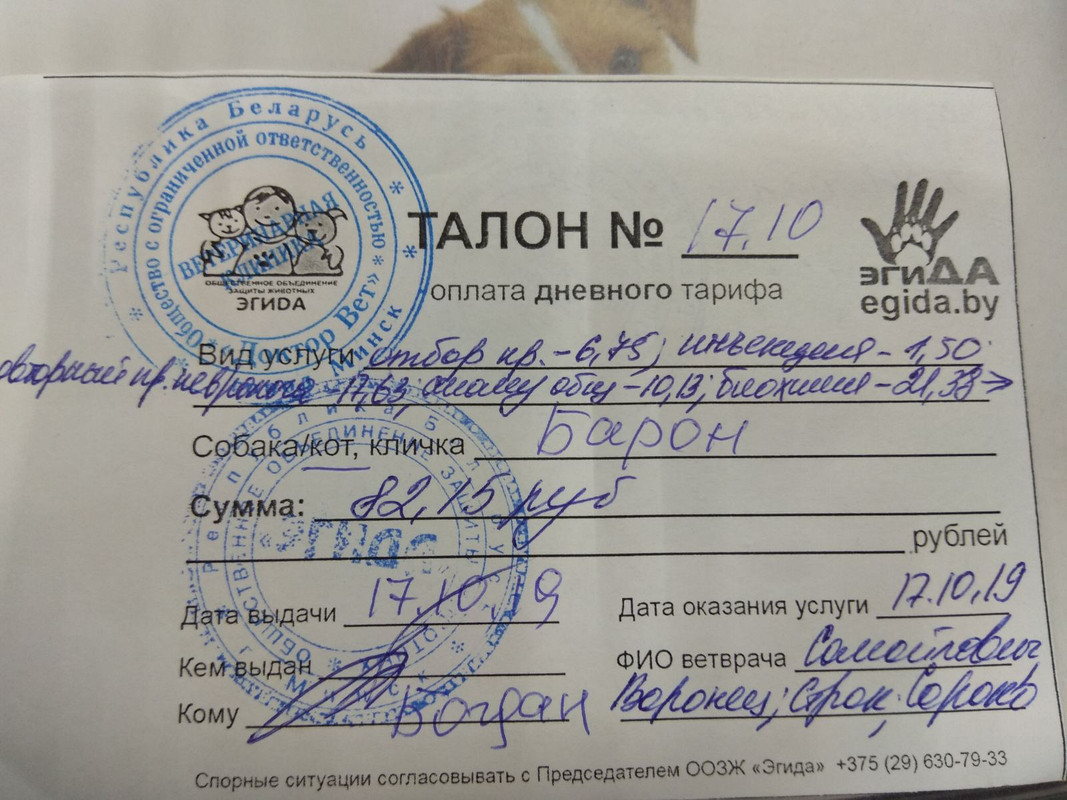 Республика Беларусь
Общество с ограниченной ответственностью
«Доктор Вет» Минск
ВЕТЕРИНАРНАЯ КЛИНИКА
ОБЩЕСТВЕННОЕ ОБЪЕДИНЕНИЕ
ЗАЩИТЫ ЖИВОТНЫХ
ЭГИDA
ТАЛОН № 17.10
оплата дневного тарифа
эгиДА
egida.by
Вид услуги отбор кр. - 6,75; инъекция - 1,50
пр. - 17,63; общ - 10,13; биохимия - 21,38 →
Собака/кот, кличка Барон
Сумма: 82,15 руб
рублей
Дата выдачи 17.10.19
Дата оказания услуги 17.10.19
Кем выдан
ФИО ветврача Самойлович
Воронец; Строк; Сороко
Кому Богдан
Спорные ситуации согласовывать с Председателем ООЗЖ «Эгида» +375 (29) 630-79-33